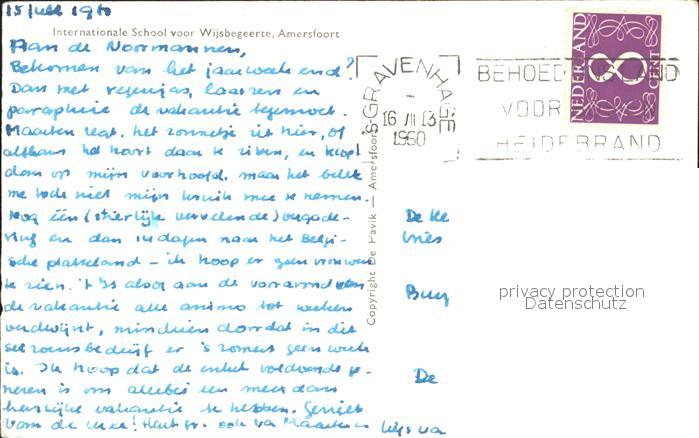 15 juli 1960
Internationale School voor Wijsbegeerte, Amersfoort
Aan de Noormannen,
Bekomen van het jaarweekend?
Dan met regenjas, laarzen en
paraphuie de vakantie tegemoet.
Maarten zegt, het zonnetje zit hier, of
althans het hoort daar te zitten, en klopt
dan op mijn voorhoofd, maar het
me toch niet mijn kruik mee te nemen.
Nog één (sierlijk vervelende) vergade-
ring en dan 14 dagen naar het Belgi-
sche platteland – ik hoop er geen vrouwen
te zien. 't Is alsof aan de vooravond van
de vakantie alle animo tot werken
verdwijnt, misschien doordat in dit
seizoensbedrijf er 's zomers geen werk
is. Ik hoop dat de enkel voldoende ge-
nezen is om allebei een meer dan
heerlijke vakantie te hebben. Geniet
van de zee! Hart. gr. ook va Maarten
Copyright De Pavik – Amersfoort
'S GRAVENHAGE
16 VII 13
1960
BEHOED LAND
VOOR
HEIDEBRAND
NEDERLAND
8
CENT
De He
Vries
Burg
De
privacy protection
Datenschutz